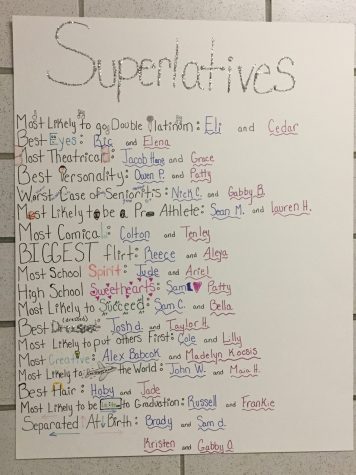 Superlatives
Most Likely to go Double Platinum: Eli and Cedar
Best Eyes: Eric and Elena
Most Theatrical: Jacob and Grace
Best Personality: Owen P. and Patty
Worst Case of Senioritis: Nick C. and Gabby B.
Most Likely to be a Pro Athlete: Sean M. and Lauren H.
Most Comical: Colton and Tenley
BIGGEST flirt: Reece and Alexa
Most School Spirit: Jude and Ariel
High School Sweethearts: Sam Patty
Most Likely to Succeed: Sam C. and Bella
Best Dressed: Josh d. and Taylor H.
Most likely to put others First: Cole and Lilly
Most Creative: Alex Babcock and Madelyn Kocsis
Most Likely to the World: John W. and Maia H.
Best Hair: Hoby and Jade
Most Likely to be to Graduation: Russell and Frankie
Separated At Birth: Brady and Sam d.
Kristen and Gabby O.